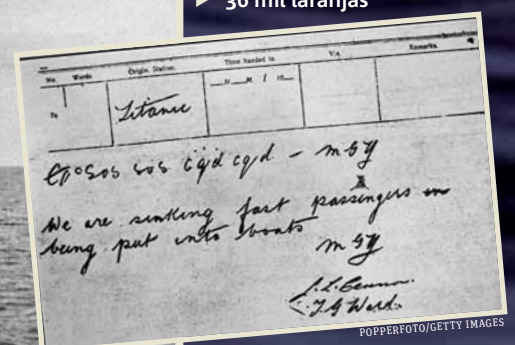 36 mil laranjas
No. Words. Origin. Station. Time handed in. Via. Remarks.
To Titanic
SOS SOS cqd cqd - MGY
We are sinking fast passengers
being put into boats
MGY
Ward.
POPPERFOTO/GETTY IMAGES